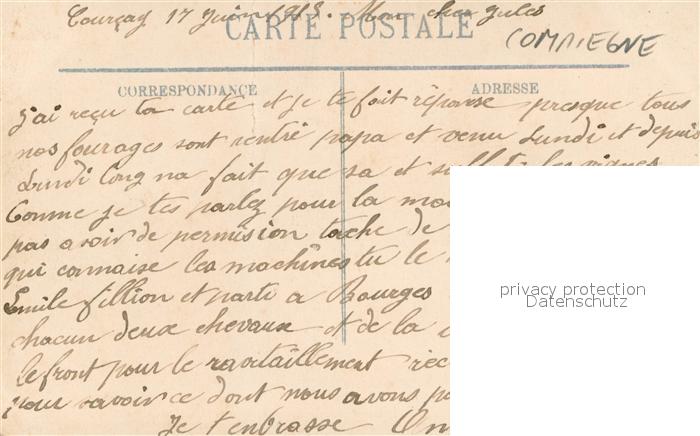 Courçay 17 Juin 1915. Mon cher Jules
CARTE POSTALE
COMPIEGNE
CORRESPONDANCE
ADRESSE
J'ai reçu ta carte et je te fait réponse presque tous
nos fourages sont rentré papa et venu Lundi et depuis
Lundi long na fait que sa et les vignes
Comme je tes parlez pour la
pas avoir de permision tache de
qui connaise les machines tu le
Emile fillion et parti a Bourges
chacun deux chevaux et de la
le front pour le ravitaillement
pour savoir ce dont nous avons
Je t'enbrasse
privacy protection
Datenschutz